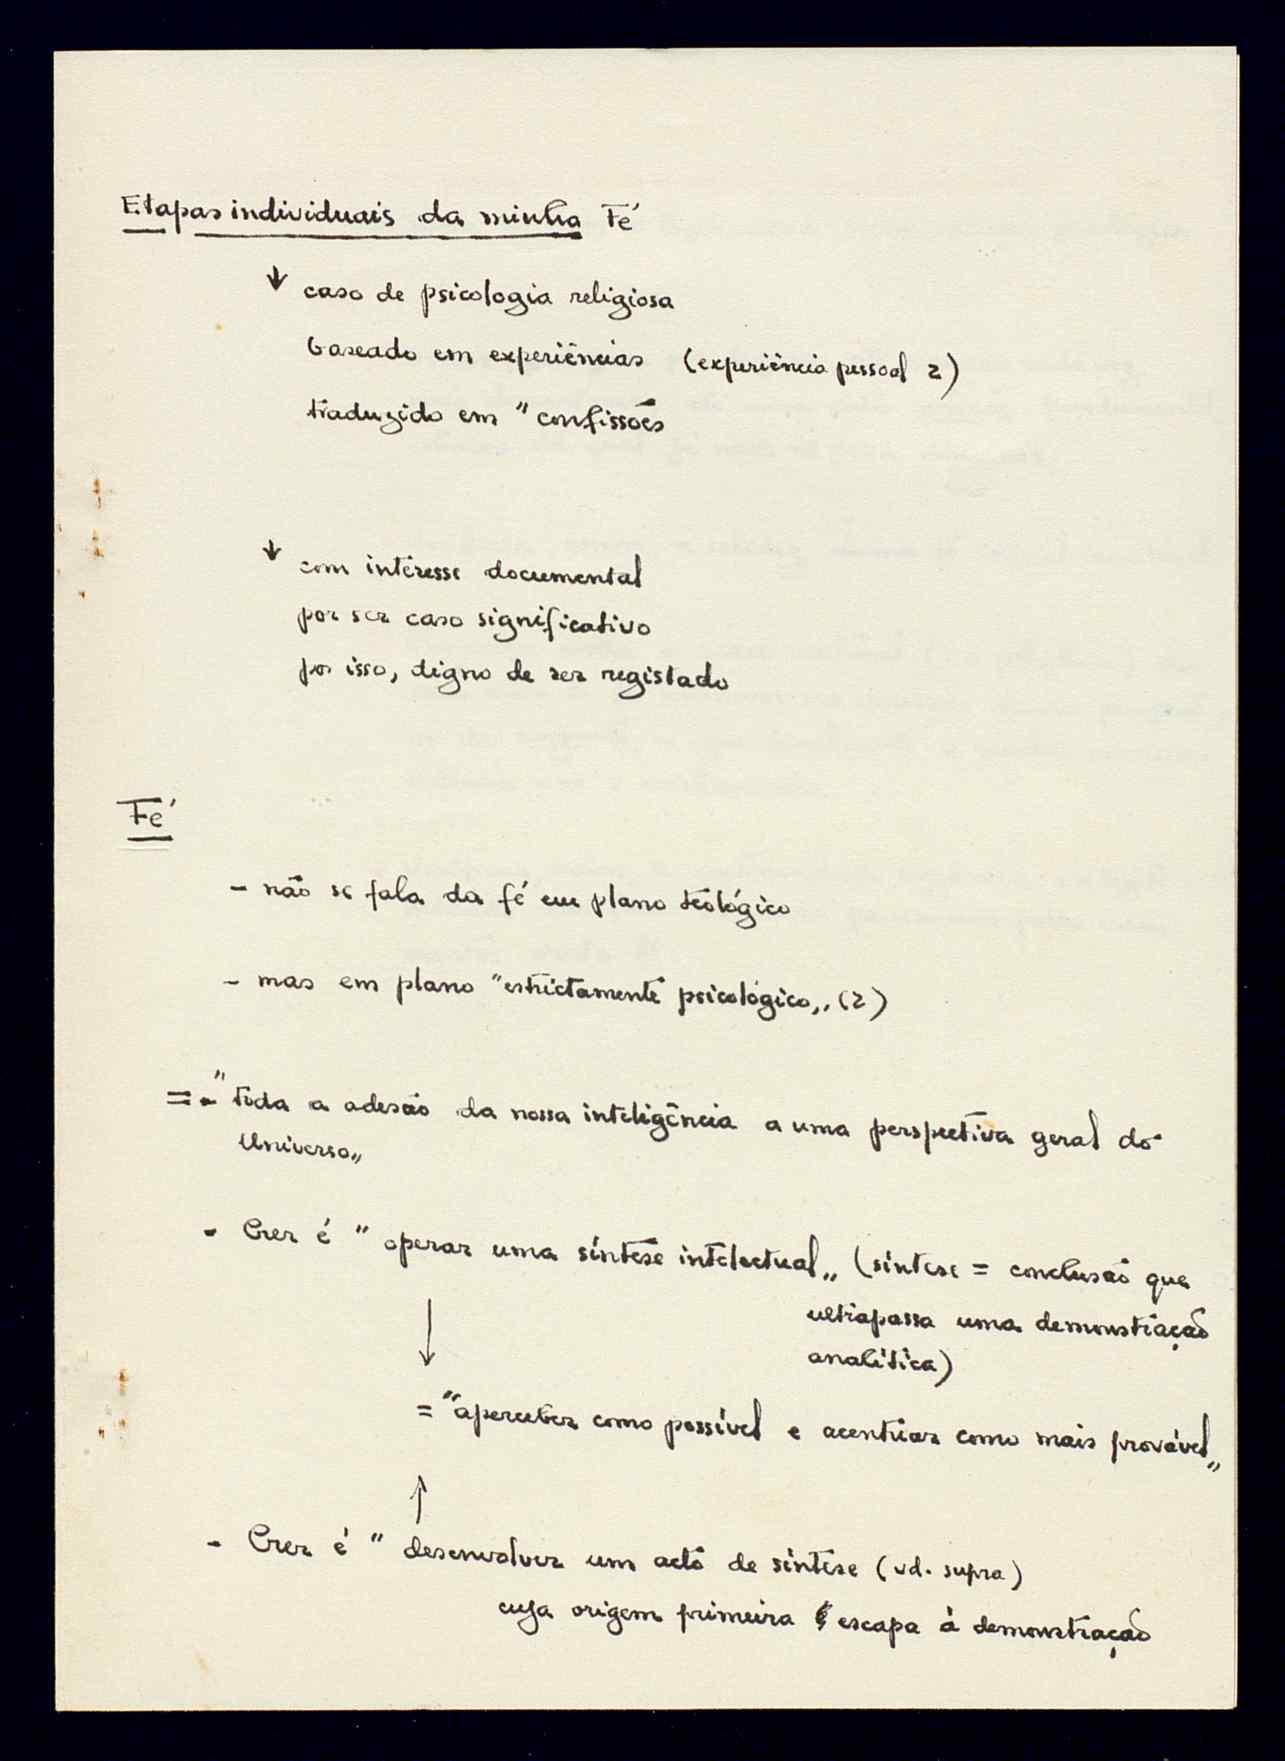 Etapas individuais da minha Fé
↓ caso de psicologia religiosa
baseado em experiências (experiência pessoal 2)
traduzido em "confissões
↓ com interesse documental
por ser caso significativo
por isso, digno de ser registado
Fé
- não se fala da fé em plano teológico
- mas em plano "estrictamente psicológico,, (2)
= - "toda a adesão da nossa inteligência a uma perspectiva geral do
Universo,,
- Crer é "operar uma síntese intelectual,, (síntese = conclusão que
ultrapassa uma demonstração
analítica)
↓
= "aperceber como possível e acentuar como mais provável,,
↑
- Crer é "desenvolver um acto de síntese (vd. supra)
cuja origem primeira escapa à demonstração